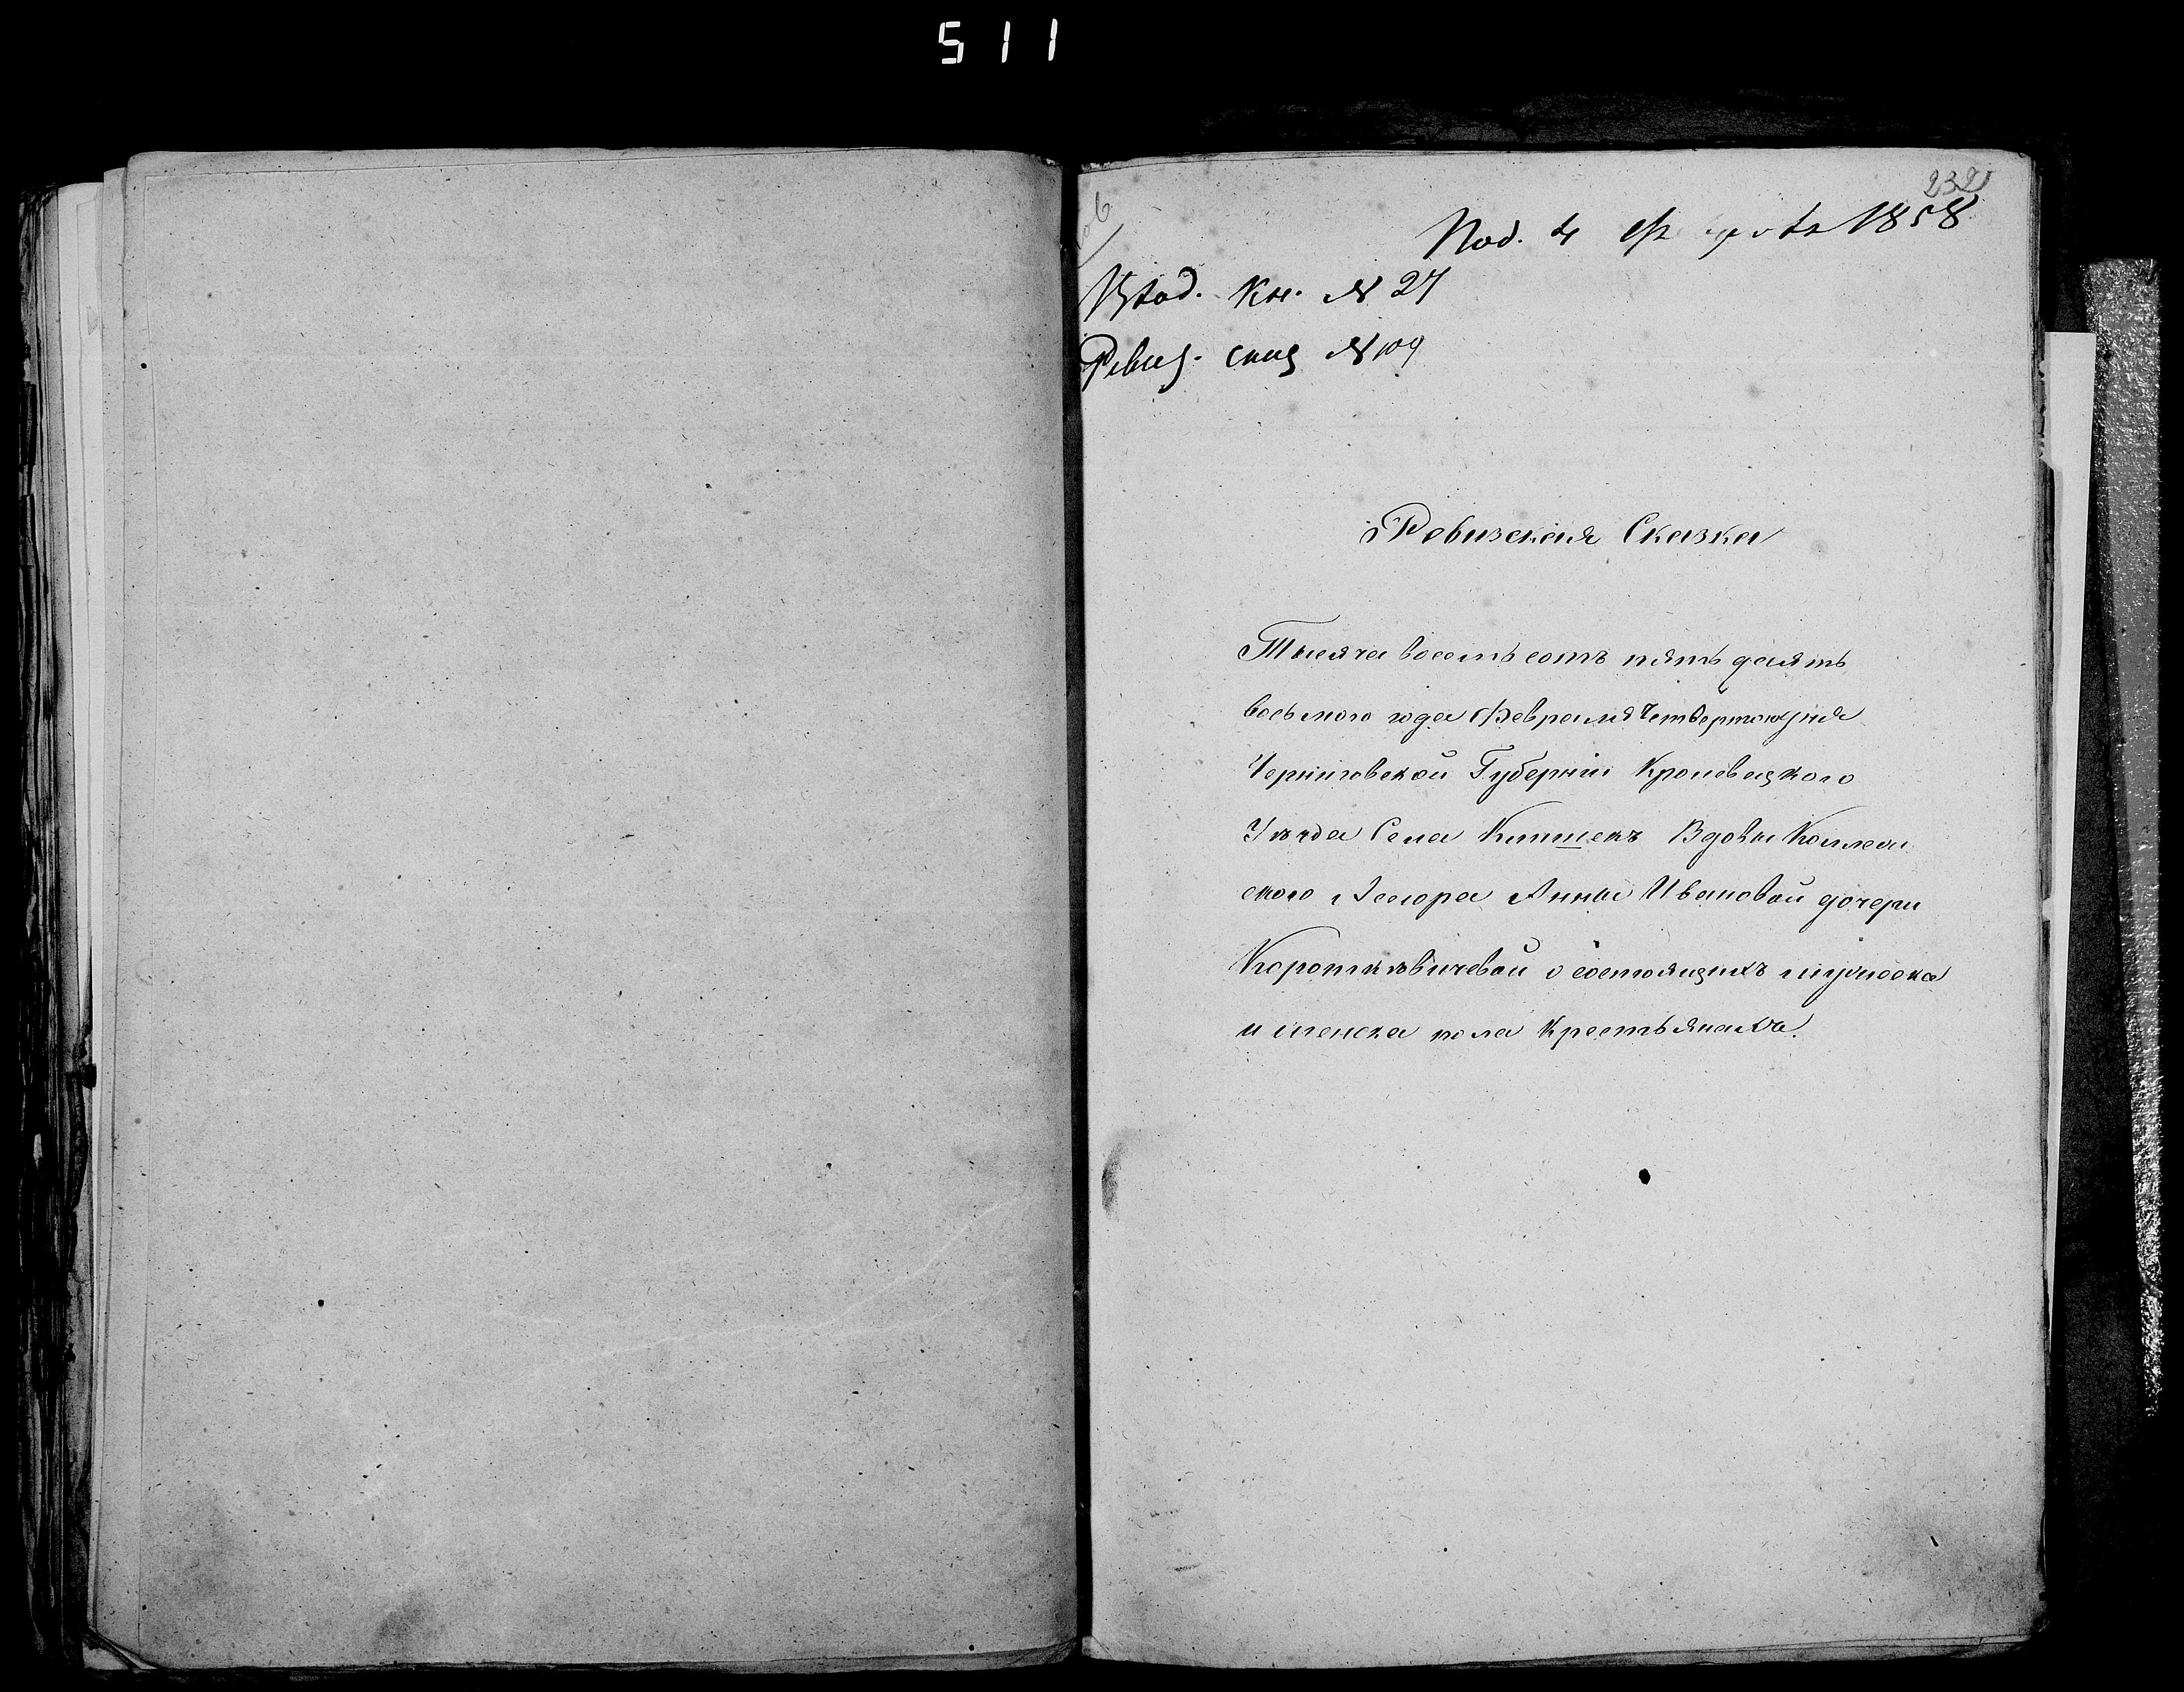 511
232
Под. 4 1858
Вход. Кн. № 27
Ревиз. сказ № 109
Ревизская Сказка
Тысяча восемь сотъ пять десять
восьмого года Февраля Четвертого дня
Черниговской Губерніи Кролевецкого
Уѣзда Села Клишекъ Вдовы Коллеж
ского Асесора Анны Ивановой дочери
Короткѣвичевой о состоящихъ мужеска
и женска пола Крестьянахъ.